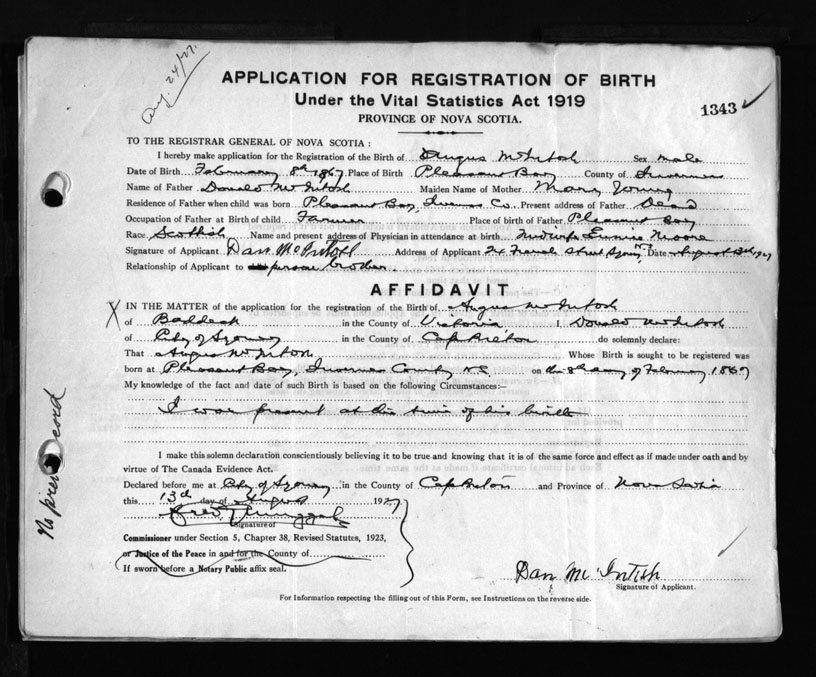 Aug. 24/27.
APPLICATION FOR REGISTRATION OF BIRTH
Under the Vital Statistics Act 1919
1343
PROVINCE OF NOVA SCOTIA.
TO THE REGISTRAR GENERAL OF NOVA SCOTIA :
I hereby make application for the Registration of the Birth of Angus McIntosh Sex male
Date of Birth February 8th 1867 Place of Birth Pleasant Bay County of Inverness
Name of Father Donald McIntosh Maiden Name of Mother Mary Young
Residence of Father when child was born Pleasant Bay, Inverns Co. Present address of Father Dead
Occupation of Father at Birth of child Farmer Place of birth of Father Pleasant Bay
Race Scottish Name and present address of Physician in attendance at birth Midwife Moore
Signature of Applicant Dan McIntosh Address of Applicant Street Sydney NS Date August 13th 1927
Relationship of Applicant to person brother
AFFIDAVIT
X IN THE MATTER of the application for the registration of the Birth of Angus McIntosh
of Baddeck in the County of Victoria I, Donald McIntosh
of City of Sydney in the County of Cape Breton do solemnly declare:
That Angus McIntosh Whose Birth is sought to be registered was
born at Pleasant Bay, Inverness County NS on the 8th day of February 1867
My knowledge of the fact and date of such Birth is based on the following Circumstances:—
I was present at the time of his birth
I make this solemn declaration conscientiously believing it to be true and knowing that it is of the same force and effect as if made under oath and by
virtue of The Canada Evidence Act.
Declared before me at City of Sydney in the County of Cape Breton and Province of Nova Scotia
this 13th day of August 1927
Signature of
Commissioner under Section 5, Chapter 38, Revised Statutes, 1923,
or Justice of the Peace in and for the County of
If sworn before a Notary Public affix seal.
Dan McIntosh
Signature of Applicant.
For Information respecting the filling out of this Form, see Instructions on the reverse side.
No prev record